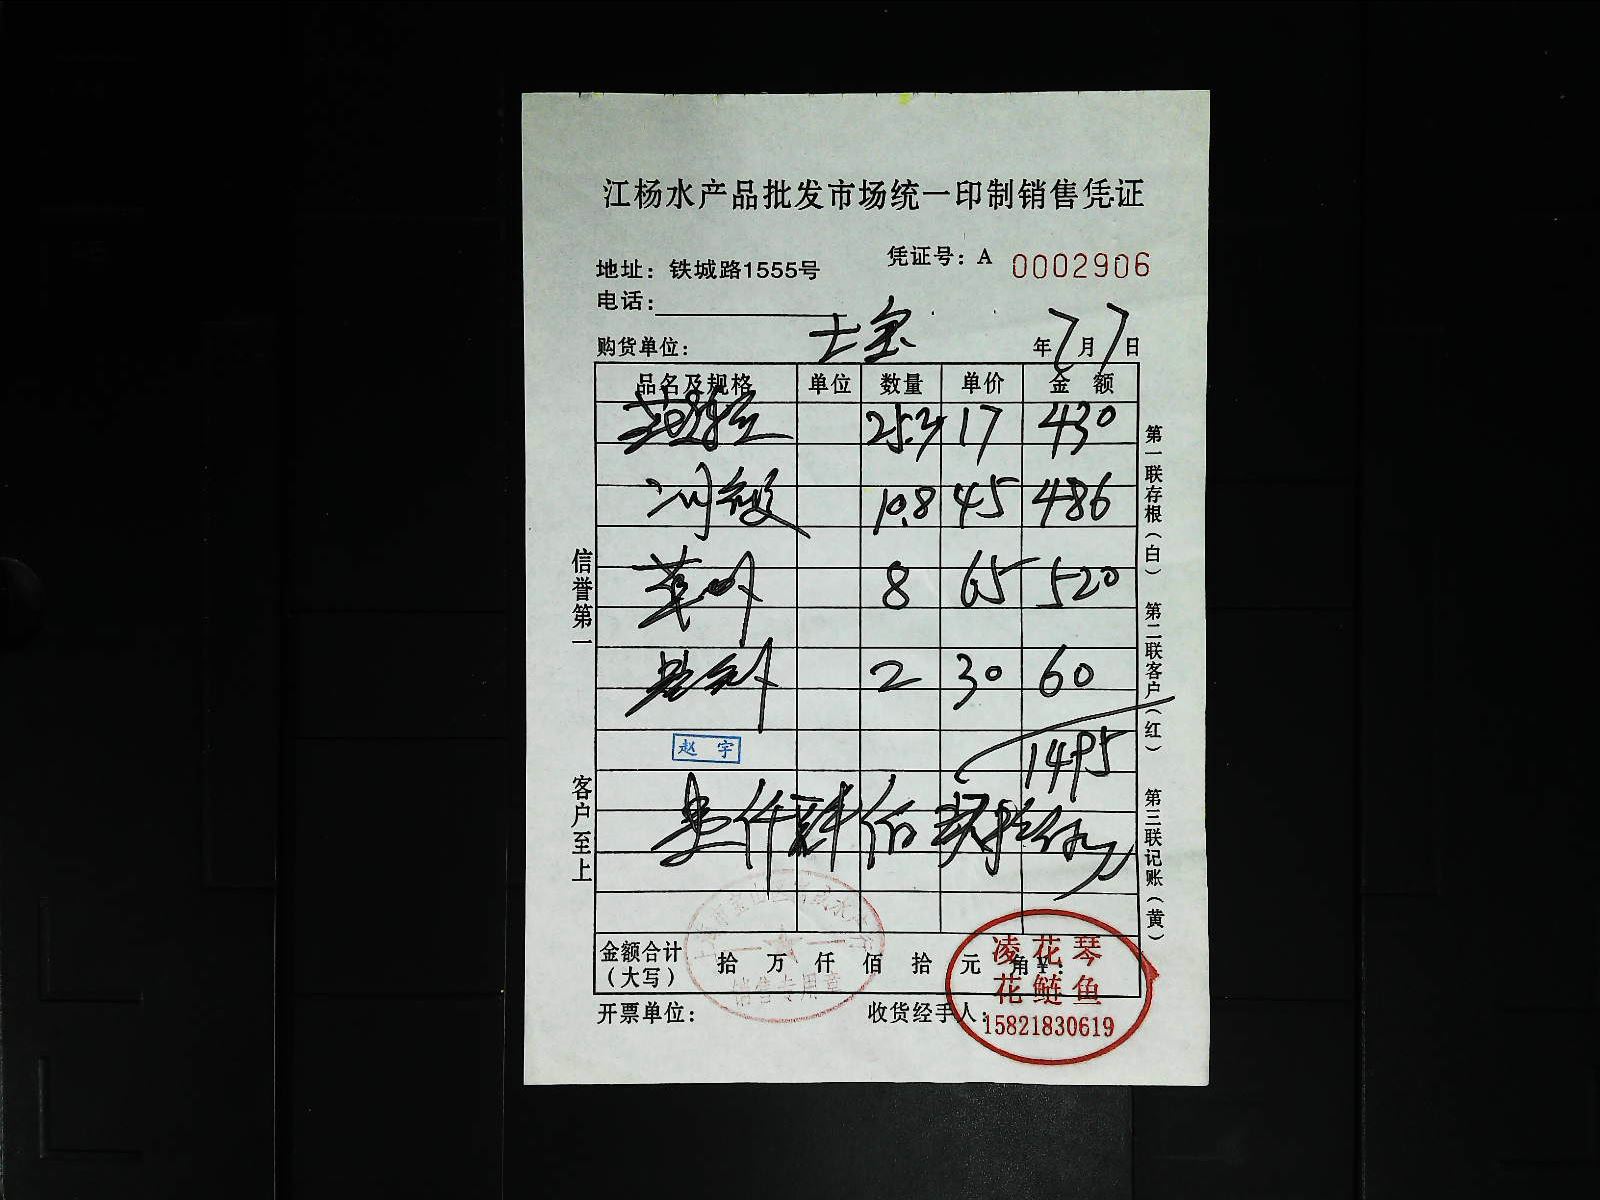 江杨水产品批发市场统一印制销售凭证
凭证号：A 0002906
地址：铁城路1555号
电话：
购货单位：士宝 年7月7日
品名及规格 单位 数量 单价 金额
25.3 17 430
10.8 45 486
8 65 520
2 30 60
赵宇
1495
壹仟肆佰玖拾伍
金额合计（大写） 拾 万 仟 佰 拾 元 角 ¥：
开票单位： 收货经手人：
信誉第一
客户至上
第一联存根（白）
第二联客户（红）
第三联记账（黄）
销售专用章
凌花琴
花鲢鱼
15821830619